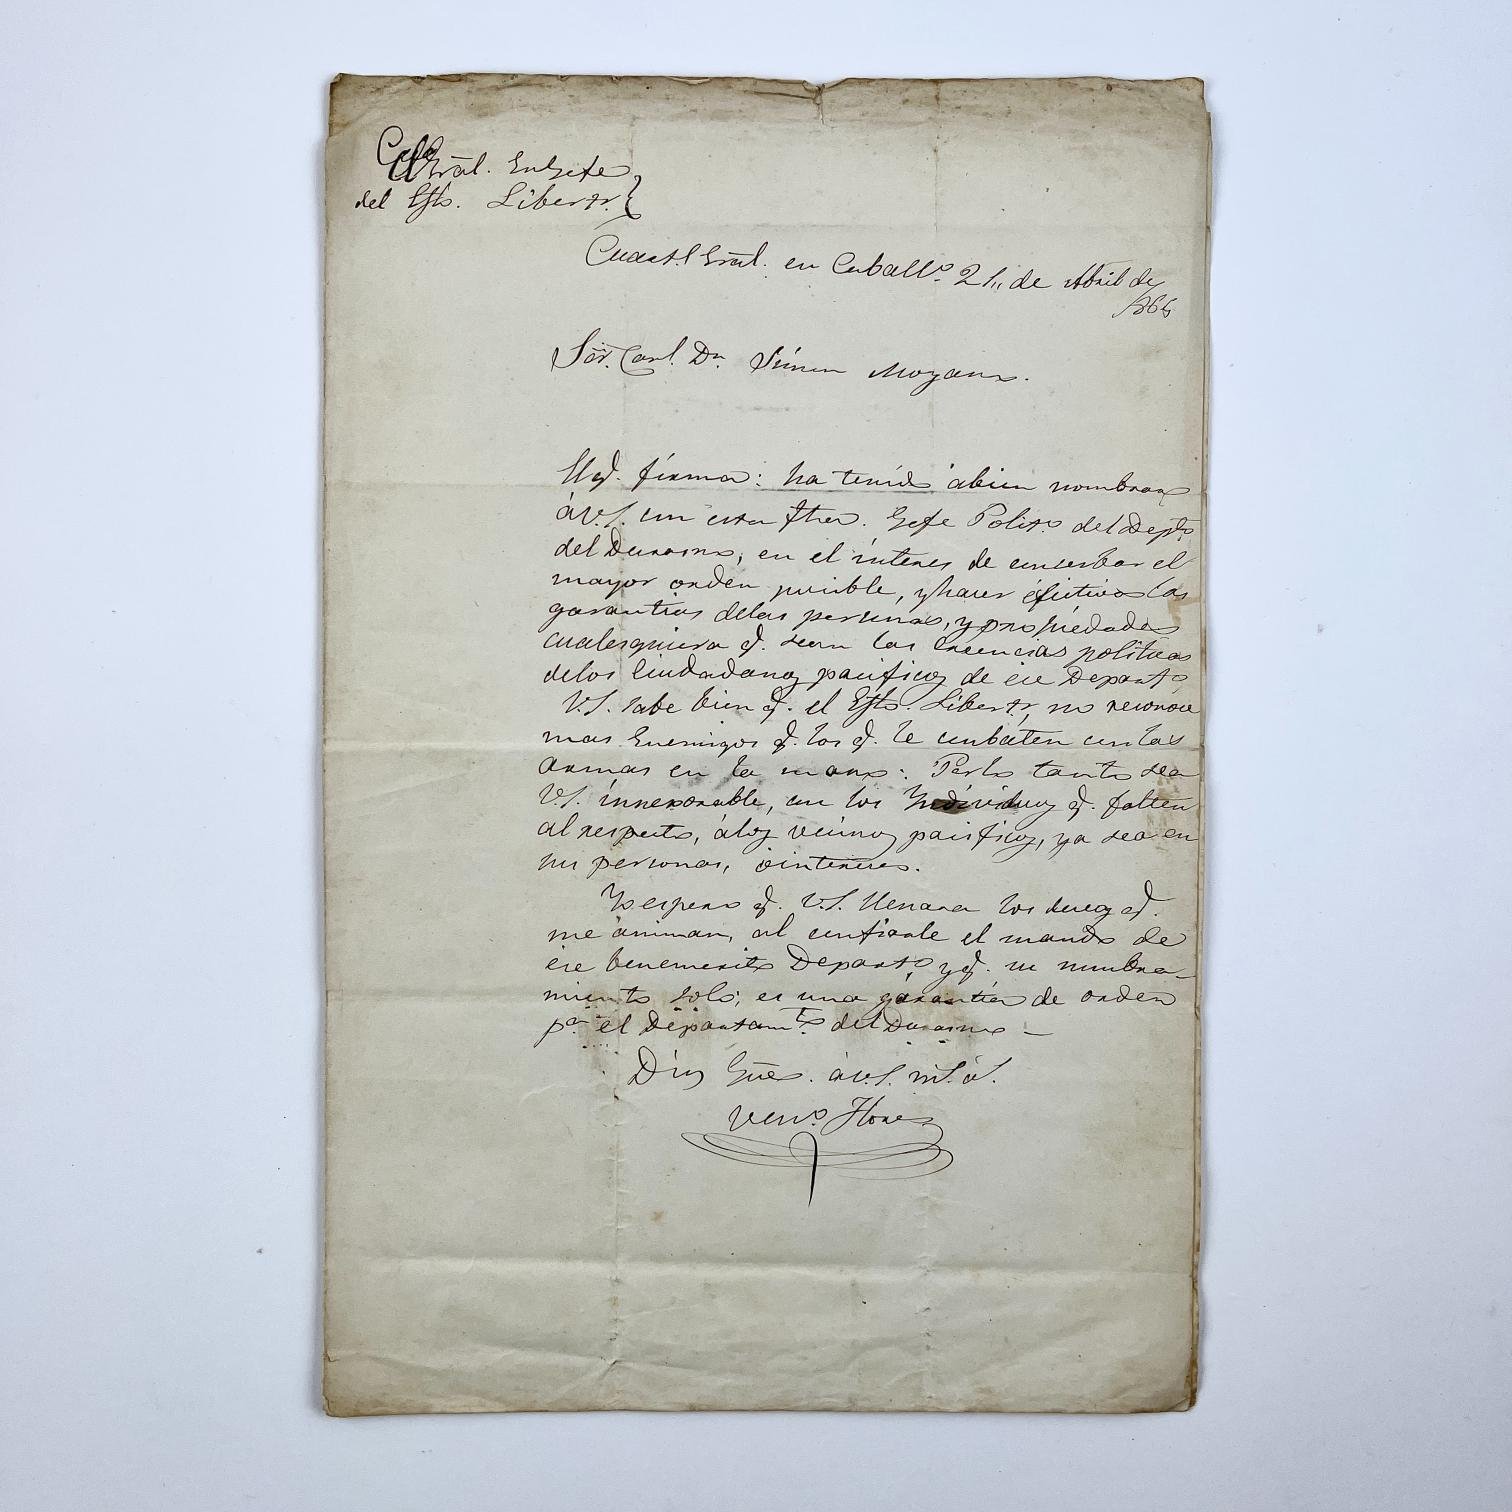 Gral. En Gefe
del Eto. Libertr.
Cuartl Gral. en Caballo. 21,, de Abril de
1865
Sor. Corl. Dn. Simon Moyano.
El q. firma: ha tenido abien nombrar
á V.S. con esta fha. Gefe Polito. del Depto.
del Durasno, en el interes de conserbar el
mayor orden posible, y hacer efectivas las
garantias delas personas, y propiedades
cualesquiera q. sean las creencias politicas
delos Ciudadanos pacificos de ese Departo.
V.S. sabe bien q. el Eto. Libertr, no reconose
mas Enemigos q. los q. le conbaten con las
armas en la mano: Porlo tanto sea
V.S. innexorable, con los Individuos q. falten
al respeto, álos vecinos pacificos, ya sea en
sus personas, óintereses.
Yo espero q. V.S. llenara los deceos q.
me animan, al confiarle el mando de
ese benemerito Departo y q. su nombra-
miento solo; es una garantia de orden
pa. el Departamto. del Durasno —
Dios Gue. á V.S. ms. as.
Veno. Flores